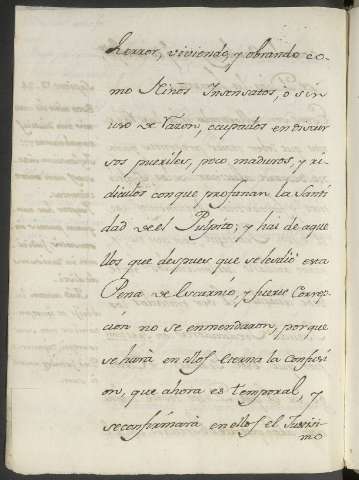 herror, viviendo, y obrando co-
mo Niños Insensatos, ò sin
uso de razon, ocupados en discur
sos pueriles, poco maduros, y ri-
diculos con que profanan la Santi
dad de el Pulpito; y hai de aque
llos que despues que se les dió esta
Pena de Escarnio, y fuerte Correp-
cion no se enmendaron, porque
se hará en ellos eterna la Confusi-
on, que ahora es temporal, y
se confirmará en ellos el Juszisi-
mo